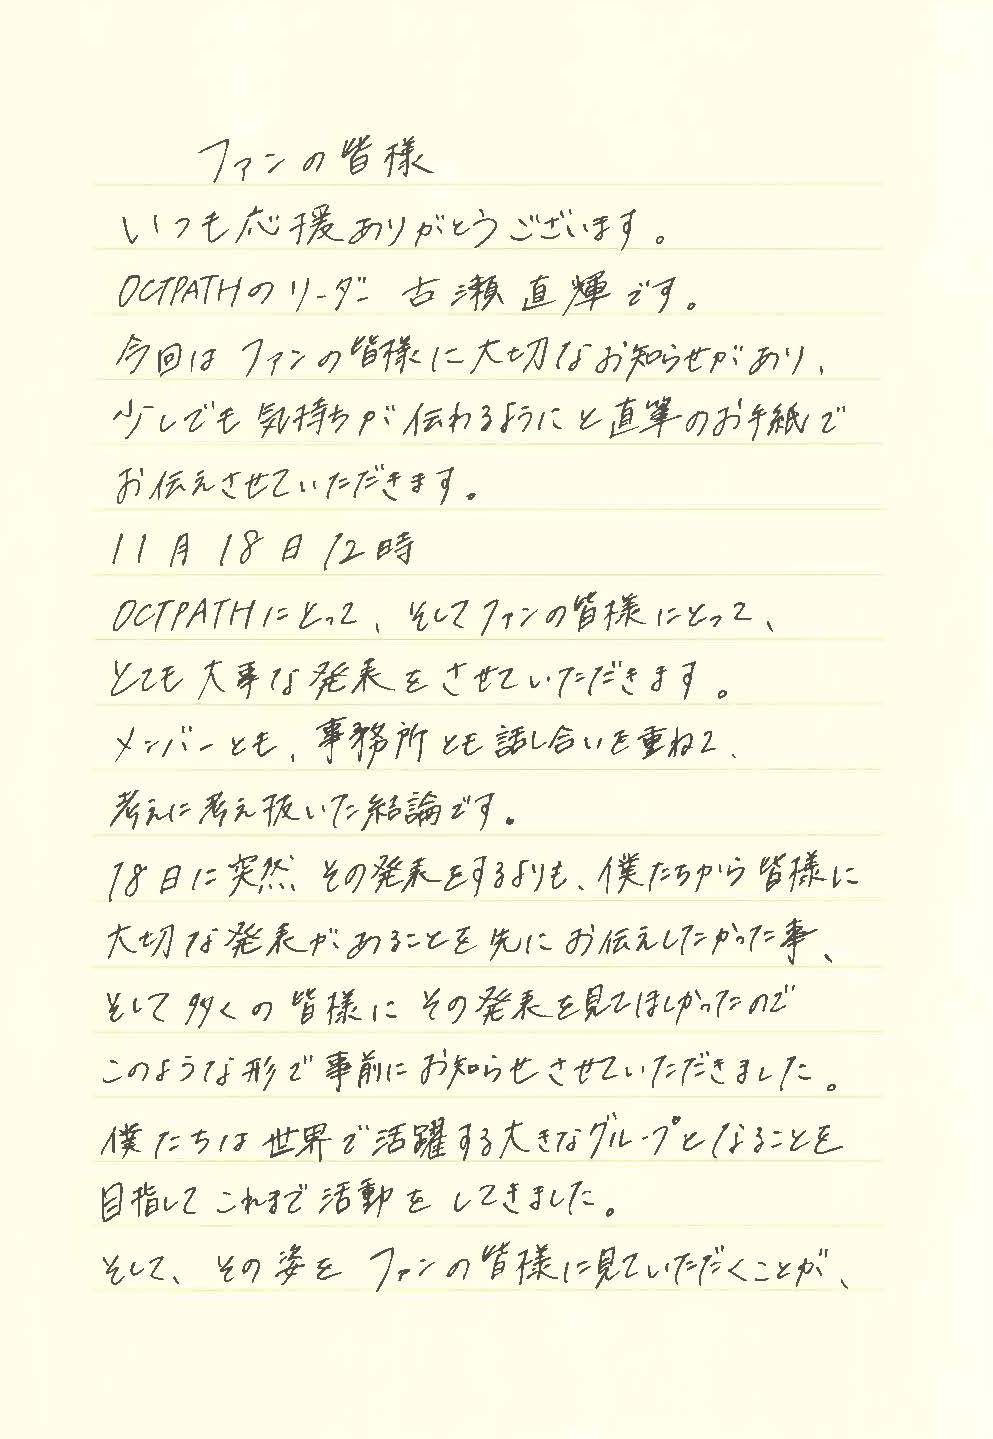 ファンの皆様
いつも応援ありがとうございます。
OCTPATHのリーダー 古瀬直輝です。
今回はファンの皆様に大切なお知らせがあり、
少しでも気持ちが伝わるようにと直筆のお手紙で
お伝えさせていただきます。
11月18日12時
OCTPATHにとって、そしてファンの皆様にとって、
とても大事な発表をさせていただきます。
メンバーとも、事務所とも話し合いを重ねて、
考えに考え抜いた結論です。
18日に突然、その発表をするよりも、僕たちから皆様に
大切な発表があることを先にお伝えしたかった事、
そして多くの皆様にその発表を見てほしかったので
このような形で事前にお知らせさせていただきました。
僕たちは世界で活躍する大きなグループとなることを
目指してこれまで活動をしてきました。
そして、その姿をファンの皆様に見ていただくことが、